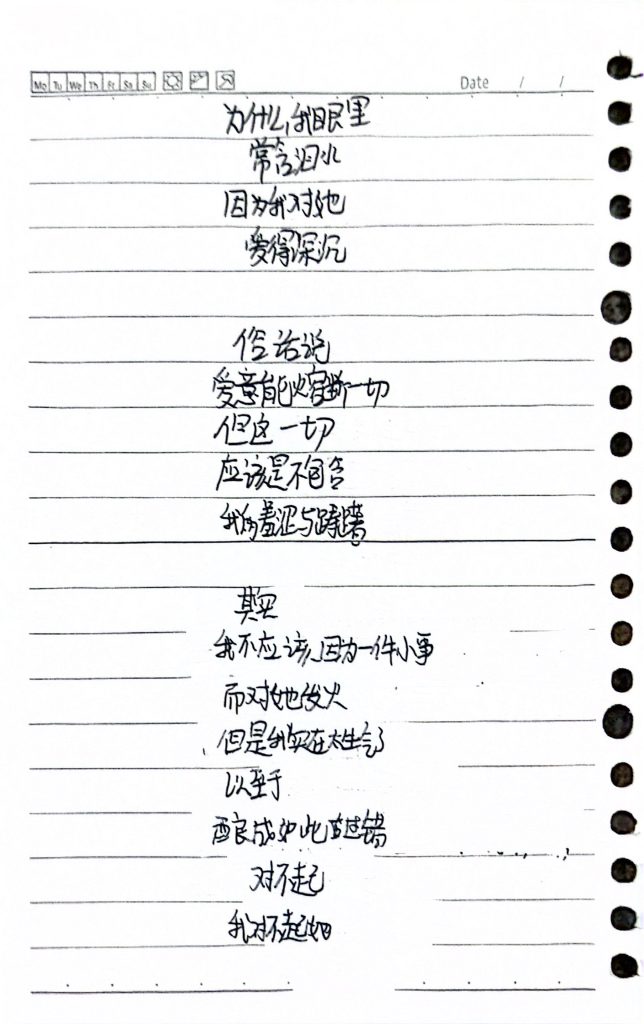 Mo Tu We Th Fr Sa Su
Date / /
为什么我眼里
常含泪水
因为我对她
爱得深沉
俗话说
爱意能熔断一切
但这一切
应该是不包含
我的羞涩与踌躇
其实
我不应该因为一件小事
而对她发火
但是我实在太生气了
以至于
酿成如此过错
对不起
我对不起她